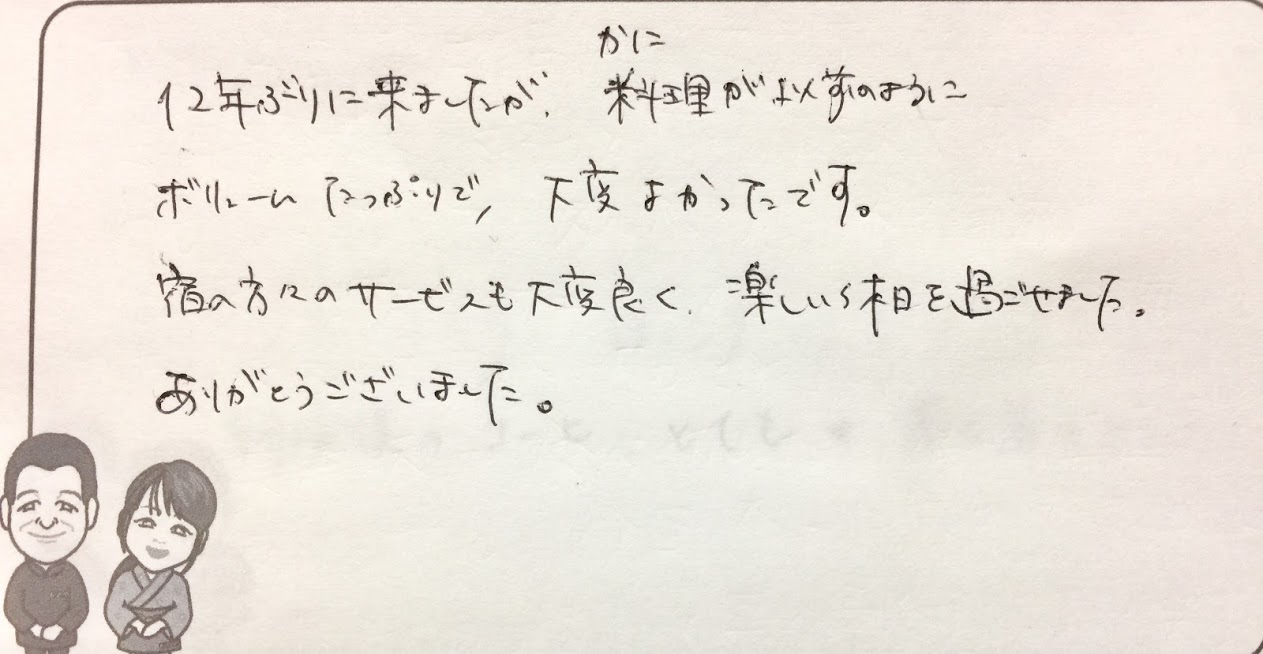 かに
12年ぶりに来ましたが、料理が以前のように
ボリュームたっぷりで、大変よかったです。
宿の方々のサービスも大変良く、楽しい週末を過ごせました。
ありがとうございました。